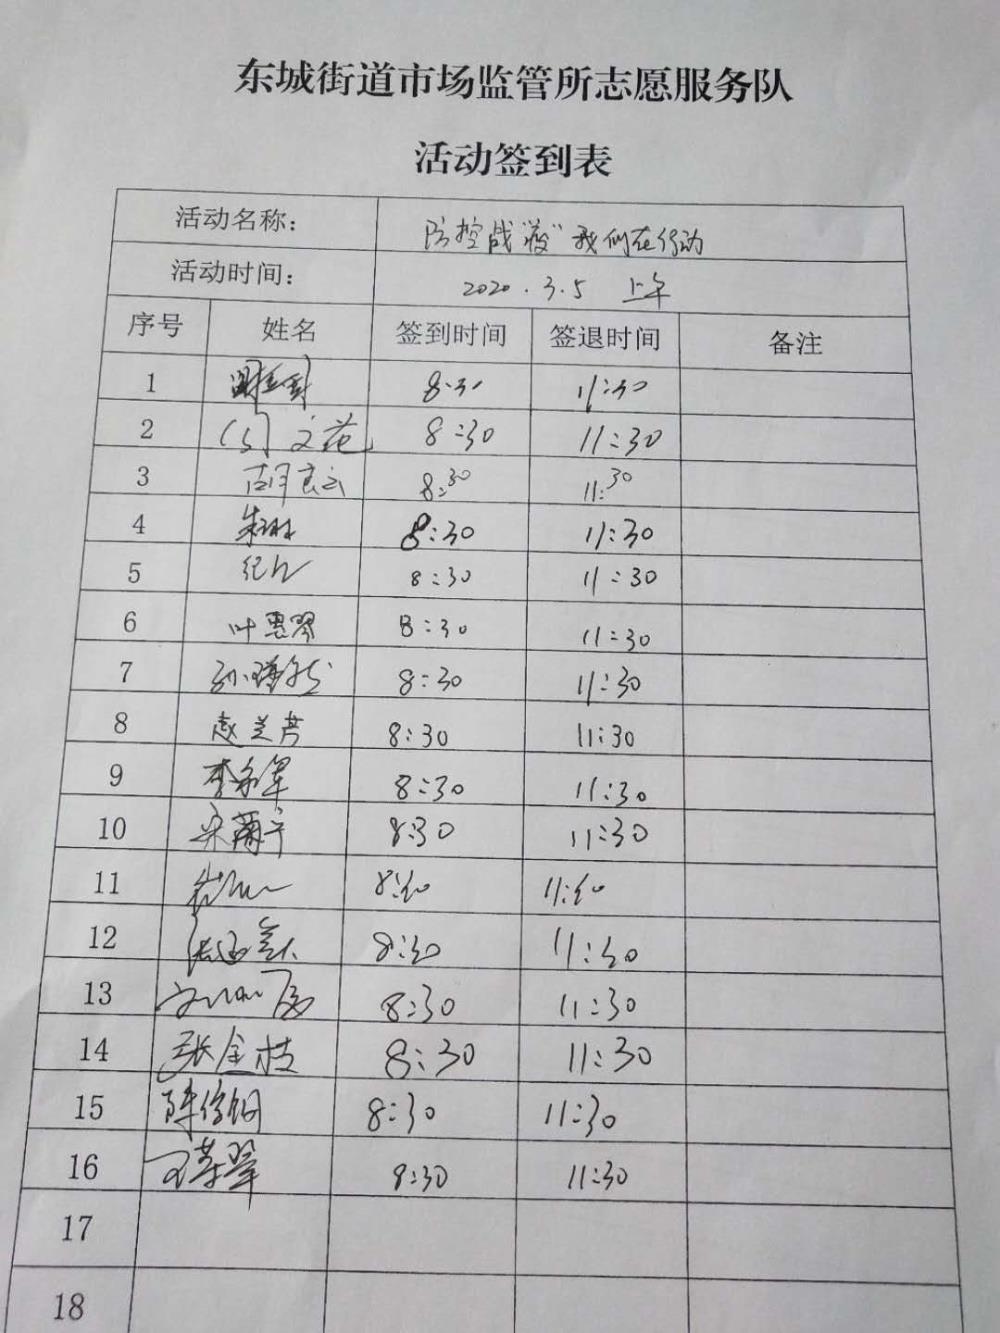 东城街道市场监管所志愿服务队
活动签到表
活动名称： 防控战“疫”我们在行动
活动时间： 2020.3.5 上午
序号 姓名 签到时间 签退时间 备注
1 8:30 11:30
2 文花 8:30 11:30
3 胡良云 8:30 11:30
4 朱琳 8:30 11:30
5 纪 8:30 11:30
6 叶惠琴 8:30 11:30
7 孙 8:30 11:30
8 赵兰芳 8:30 11:30
9 李永军 8:30 11:30
10 8:30 11:30
11 8:30 11:30
12 8:30 11:30
13 8:30 11:30
14 张金枝 8:30 11:30
15 陈 8:30 11:30
16 王 翠 8:30 11:30
17
18